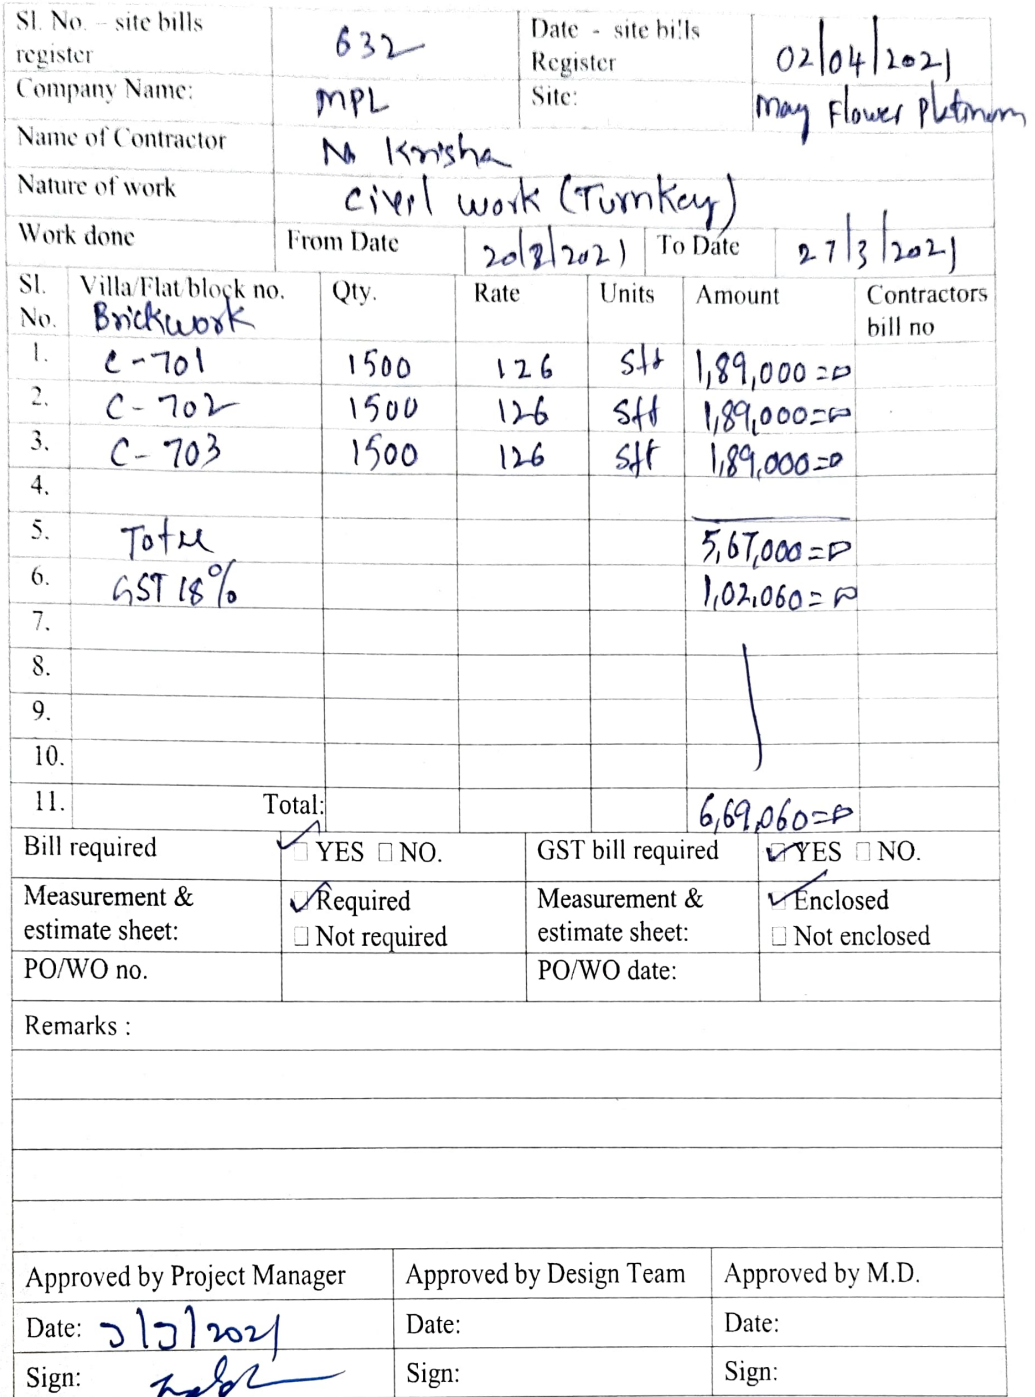 Sl. No. – site bills register 632 Date - site bills Register 02/04/2021
Company Name: MPL Site: May Flower Platinum
Name of Contractor N Krisha
Nature of work Civil work (Turnkey)
Work done From Date 20/3/2021 To Date 27/3/2021
Sl. No. Villa/Flat/block no. Qty. Rate Units Amount Contractors bill no
Brickwork
1. C-701 1500 126 Sft 1,89,000=
2. C-702 1500 126 Sft 1,89,000=
3. C-703 1500 126 Sft 1,89,000=
4.
5. Total 5,67,000=
6. GST 18% 1,02,060=
7.
8.
9.
10.
11. Total: 6,69,060=
Bill required YES NO. GST bill required YES NO.
Measurement & estimate sheet: Required Measurement & estimate sheet: Enclosed
Not required Not enclosed
PO/WO no. PO/WO date:
Remarks :
Approved by Project Manager Approved by Design Team Approved by M.D.
Date: 2021 Date: Date:
Sign: Sign: Sign: